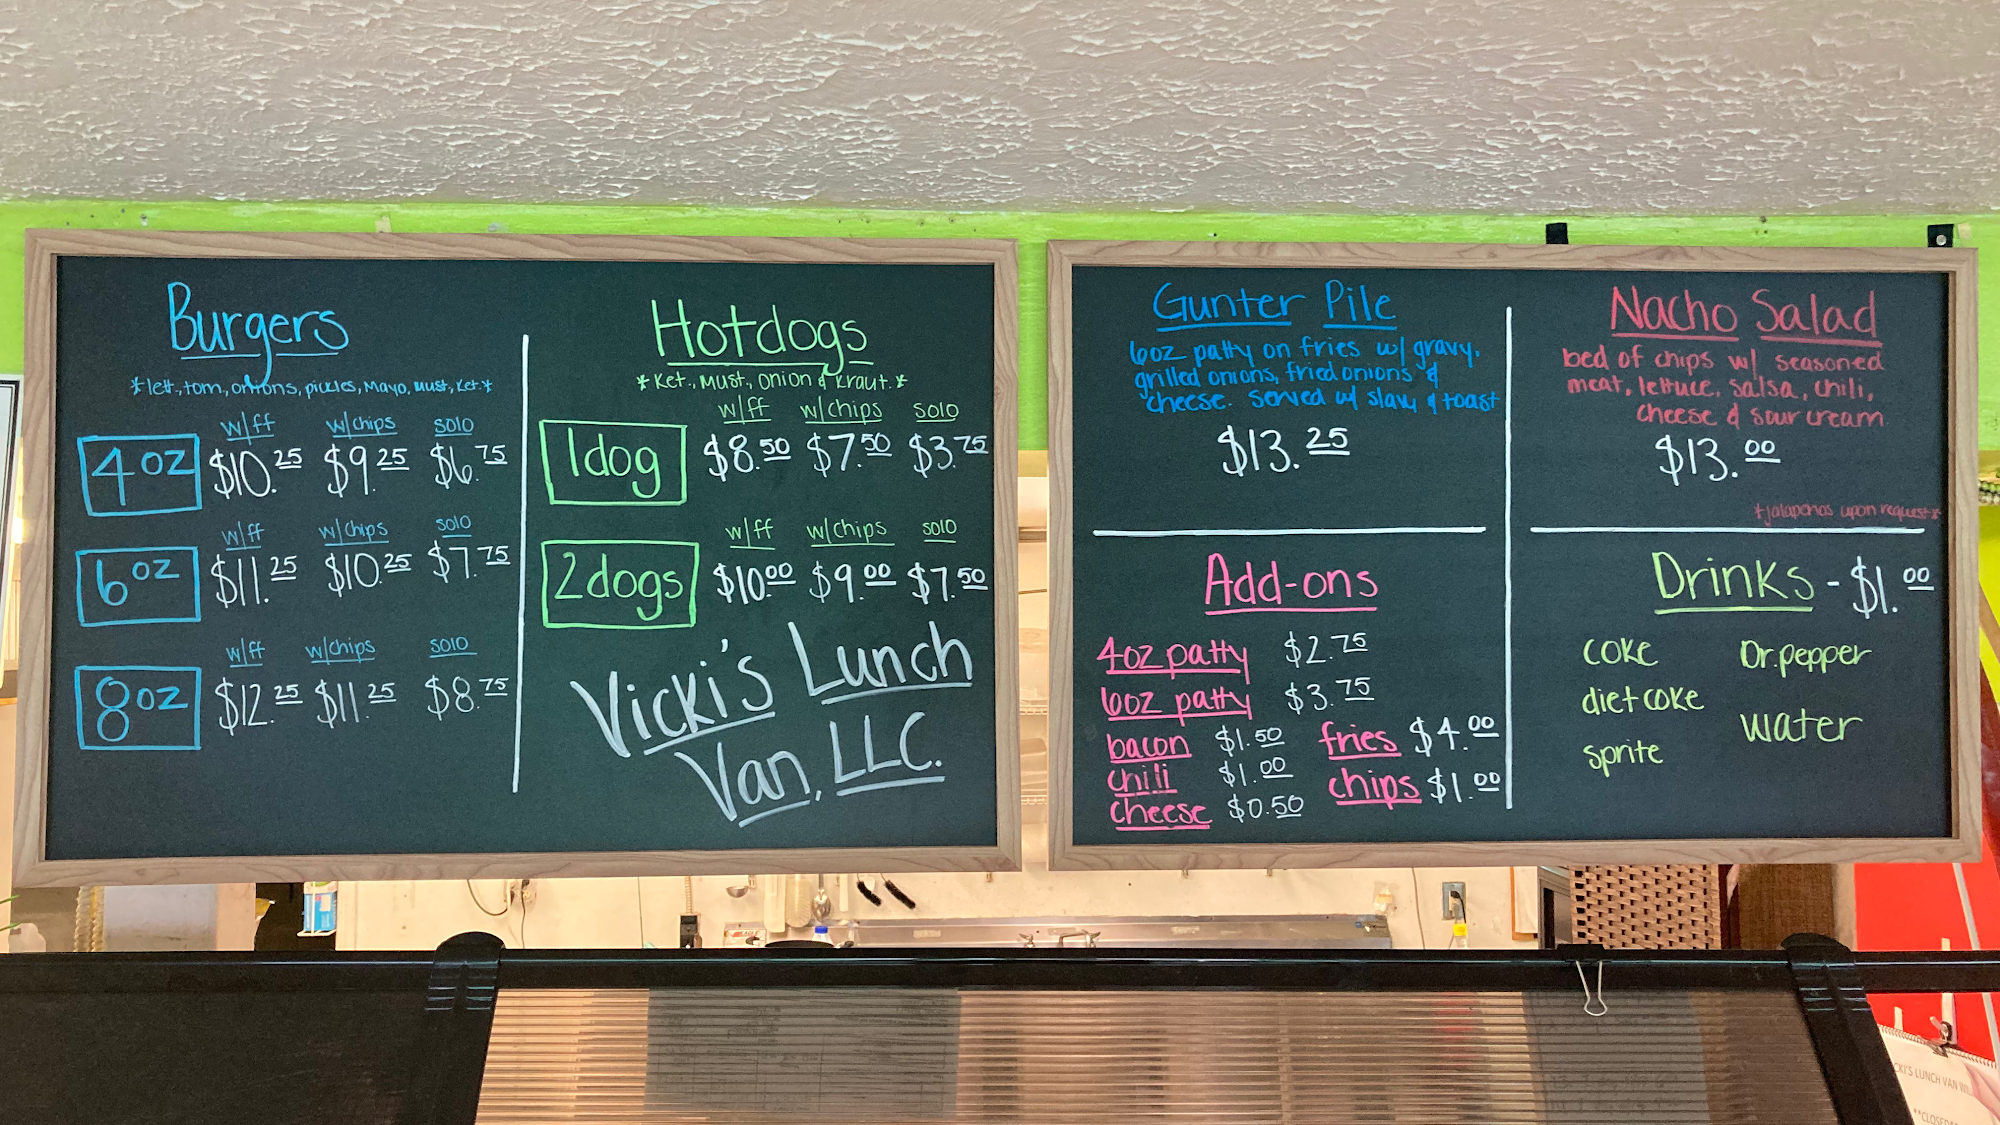 Burgers
*lett., tom, onions, pickles, Mayo, must, ket.*
w/ff w/chips solo
4oz $10.25 $9.25 $6.75
w/ff w/chips solo
6oz $11.25 $10.25 $7.75
w/ff w/chips solo
8oz $12.25 $11.25 $8.75
Hotdogs
*Ket., Must., onion & kraut.*
w/ff w/chips solo
1dog $8.50 $7.50 $3.75
w/ff w/chips solo
2dogs $10.00 $9.00 $7.50
Vicki's Lunch
Van, LLC.
Gunter Pile
6oz patty on fries w/ gravy,
grilled onions, fried onions &
cheese. served w/ slaw & toast
$13.25
Nacho Salad
bed of chips w/ seasoned
meat, lettuce, salsa, chili,
cheese & sour cream
$13.00
*jalapenos upon request*
Add-ons
4oz patty $2.75
6oz patty $3.75
bacon $1.50
chili $1.00
cheese $0.50
fries $4.00
chips $1.00
Drinks - $1.00
coke
diet coke
sprite
Dr.pepper
water
LUNCH VAN